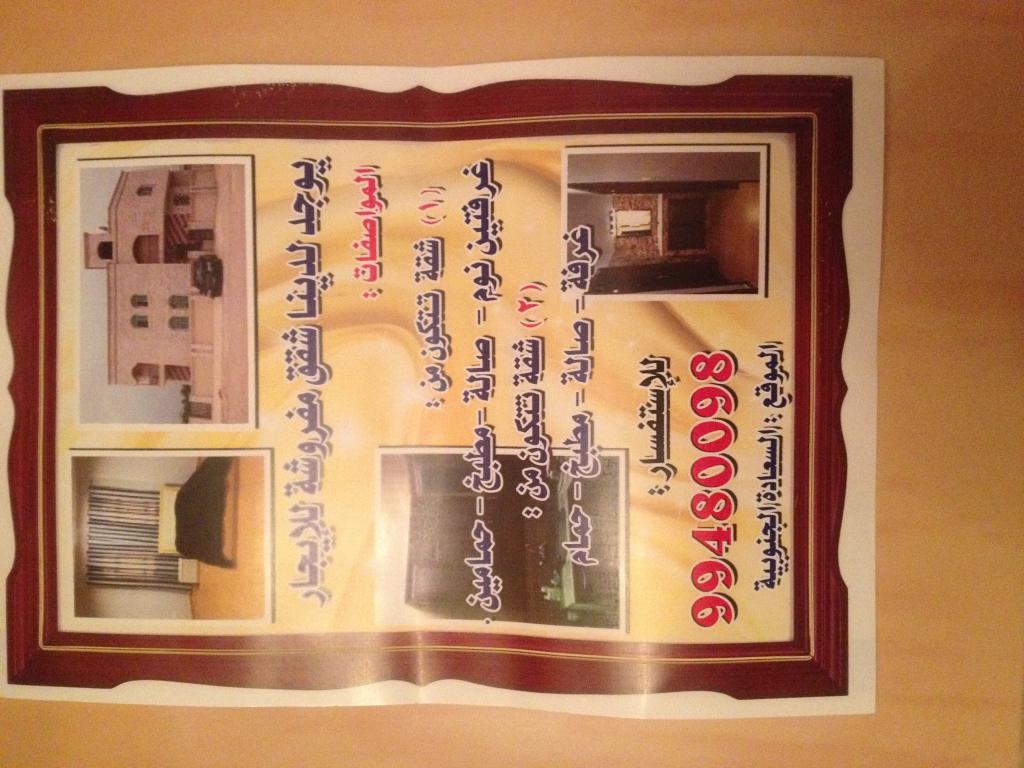 يوجد لدينا شقق مفروشة للإيجار
المواصفات :
(١) شقة تتكون من :
غرفتين نوم - صالة - مطبخ - حمامين .
(٢) شقة تتكون من :
غرفة - صالة - مطبخ - حمام
للإستفسار :
99480098
الموقع : السعادة الجنوبية